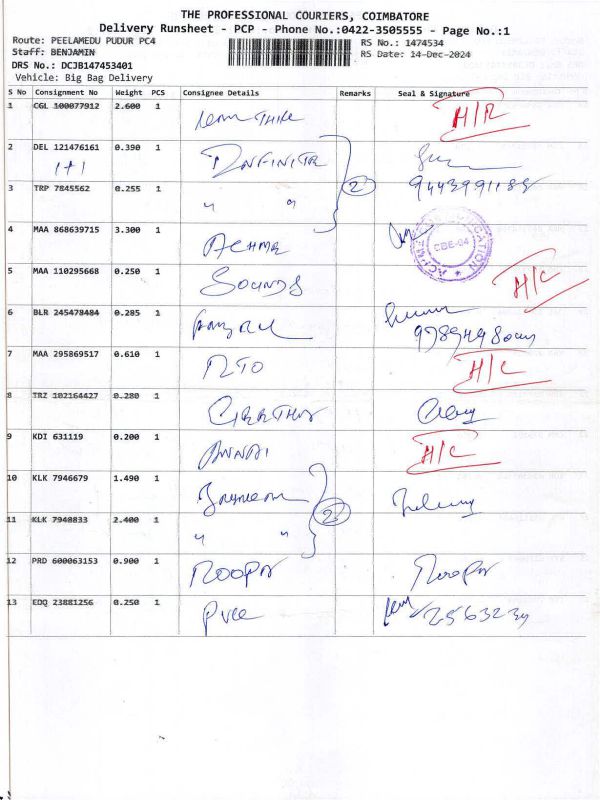 THE PROFESSIONAL COURIERS, COIMBATORE
Delivery Runsheet - PCP - Phone No.:0422-3505555 - Page No.:1
Route: PEELAMEDU PUDUR PC4
Staff: BENJAMIN
DRS No.: DCJB147453401
Vehicle: Big Bag Delivery
RS No.: 1474534
RS Date: 14-Dec-2024
S No Consignment No Weight PCS Consignee Details Remarks Seal & Signature
1 CGL 100077912 2.600 1 H/R
2 DEL 121476161 0.390 1 INFINITE
1+1
3 TRP 7845562 0.255 1 " " 2
4 MAA 868639715 3.300 1 ACHME CBE-04
5 MAA 110295668 0.250 1 SOUNDS H/C
6 BLR 245478484 0.285 1
7 MAA 295869517 0.610 1 RTO H/C
8 TRZ 102164427 0.280 1
9 KDI 631119 0.200 1 ANNAI H/C
10 KLK 7946679 1.490 1
11 KLK 7940833 2.400 1 " " 2
12 PRD 600063153 0.900 1 ROOPA ROOPA
13 EDQ 23881256 0.250 1